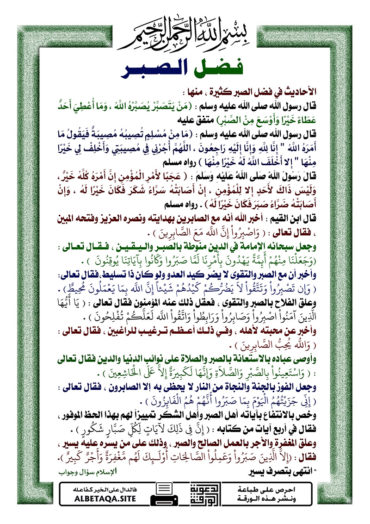 بسم الله الرحمن الرحيم
فضل الصبر
الأحاديث في فضل الصبر كثيرة ، منها :
قال رسول الله صلى الله عليه وسلم : (مَنْ يَتَصَبَّرْ يُصَبِّرْهُ اللهُ ، وَمَا أُعْطِيَ أَحَدٌ
عَطَاءً خَيْرًا وَأَوْسَعَ مِنْ الصَّبْرِ) متفق عليه
قال رسول الله صلى الله عليه وسلم : (مَا مِنْ مُسْلِمٍ تُصِيبُهُ مُصِيبَةٌ فَيَقُولُ مَا
أَمَرَهُ اللهُ " إِنَّا لِلهِ وَإِنَّا إِلَيْهِ رَاجِعُونَ ، اللهُمَّ أْجُرْنِي فِي مُصِيبَتِي وَأَخْلِفْ لِي خَيْرًا
مِنْهَا " إِلا أَخْلَفَ اللهُ لَهُ خَيْرًا مِنْهَا ) رواه مسلم
قال رسول الله صلى الله عليه وسلم : ( عَجَبًا لأَمْرِ الْمُؤْمِنِ إِنَّ أَمْرَهُ كُلَّهُ خَيْرٌ ،
وَلَيْسَ ذَاكَ لأَحَدٍ إِلا لِلْمُؤْمِنِ ، إِنْ أَصَابَتْهُ سَرَّاءُ شَكَرَ فَكَانَ خَيْرًا لَهُ ، وَإِنْ
أَصَابَتْهُ ضَرَّاءُ صَبَرَ فَكَانَ خَيْرًا لَهُ ) . رواه مسلم
قال ابن القيم : أخبر الله أنه مع الصابرين بهدايته ونصره العزيز وفتحه المبين
، فقال تعالى : ( وَاصْبِرُواْ إِنَّ اللّهَ مَعَ الصَّابِرِينَ ) .
وجعل سبحانه الإمامة في الدين منوطة بالصبر واليقين ، فقال تعالى :
(وَجَعَلْنَا مِنْهُمْ أَئِمَّةً يَهْدُونَ بِأَمْرِنَا لَمَّا صَبَرُوا وَكَانُوا بِآيَاتِنَا يُوقِنُونَ ) .
وأخبر أن مع الصبر والتقوى لا يضر كيد العدو ولو كان ذا تسليط،فقال تعالى:
( وَإِن تَصْبِرُواْ وَتَتَّقُواْ لاَ يَضُرُّكُمْ كَيْدُهُمْ شَيْئاً إِنَّ اللّهَ بِمَا يَعْمَلُونَ مُحِيطٌ) .
وعلق الفلاح بالصبر والتقوى ، فعقل ذلك عنه المؤمنون فقال تعالى : ( يَا أَيُّهَا
الَّذِينَ آمَنُواْ اصْبِرُواْ وَصَابِرُواْ وَرَابِطُواْ وَاتَّقُواْ اللّهَ لَعَلَّكُمْ تُفْلِحُونَ ) .
وأخبر عن محبته لأهله ، وفي ذلك أعظم ترغيب للراغبين ، فقال تعالى :
( وَاللّهُ يُحِبُّ الصَّابِرِينَ ) .
وأوصى عباده بالاستعانة بالصبر والصلاة على نوائب الدنيا والدين فقال تعالى
: ( وَاسْتَعِينُواْ بِالصَّبْرِ وَالصَّلاَةِ وَإِنَّهَا لَكَبِيرَةٌ إِلاَّ عَلَى الْخَاشِعِينَ ) .
وجعل الفوز بالجنة والنجاة من النار لا يحظى به إلا الصابرون ، فقال تعالى :
( إِنِّي جَزَيْتُهُمُ الْيَوْمَ بِمَا صَبَرُوا أَنَّهُمْ هُمُ الْفَائِزُونَ ) .
وخص بالانتفاع بآياته أهل الصبر وأهل الشكر تمييزاً لهم بهذا الحظ الموفور ،
فقال في أربع آيات من كتابه : ( إِنَّ فِي ذَلِكَ لآيَاتٍ لِكُلِّ صَبَّارٍ شَكُورٍ ) .
وعلق المغفرة والأجر بالعمل الصالح والصبر ، وذلك على من يسره عليه يسير ،
فقال : (إِلاَّ الَّذِينَ صَبَرُواْ وَعَمِلُواْ الصَّالِحَاتِ أُوْلَئِكَ لَهُم مَّغْفِرَةٌ وَأَجْرٌ كَبِيرٌ ).
" انتهى بتصرف يسير
الإسلام سؤال وجواب
احرص على طباعة
ونشر هذه الورقة
فالدال على الخير كفاعله
ALBETAQA.SITE